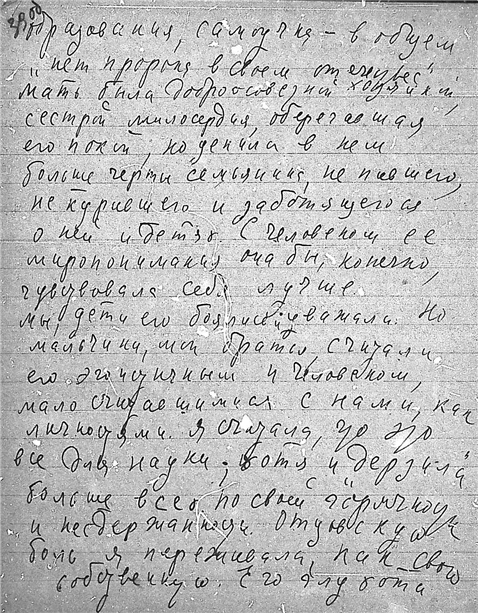 образования, самоучка – в общем
„нет пророка в своем отечестве“
мать была добросовестной хозяйкой,
сестрой милосердия, оберегавшая
его покой, но ценила в нем
больше черты семьянина, не пившего,
не курившего и заботящегося
о ней и детях. С человеком ее
миропонимания она бы, конечно,
чувствовала себя лучше
мы, дети его боялись и уважали. Но
мальчики, мои братья, считали
его эгоистичным и человеком,
мало считавшимися с нами, как
личностями. Я считала, что это
все для науки, хотя и „дерзила“
больше всех по своей горячности
и несдержанности. Отцовскую
боль я переживала, как свою
собственную. Его глухота